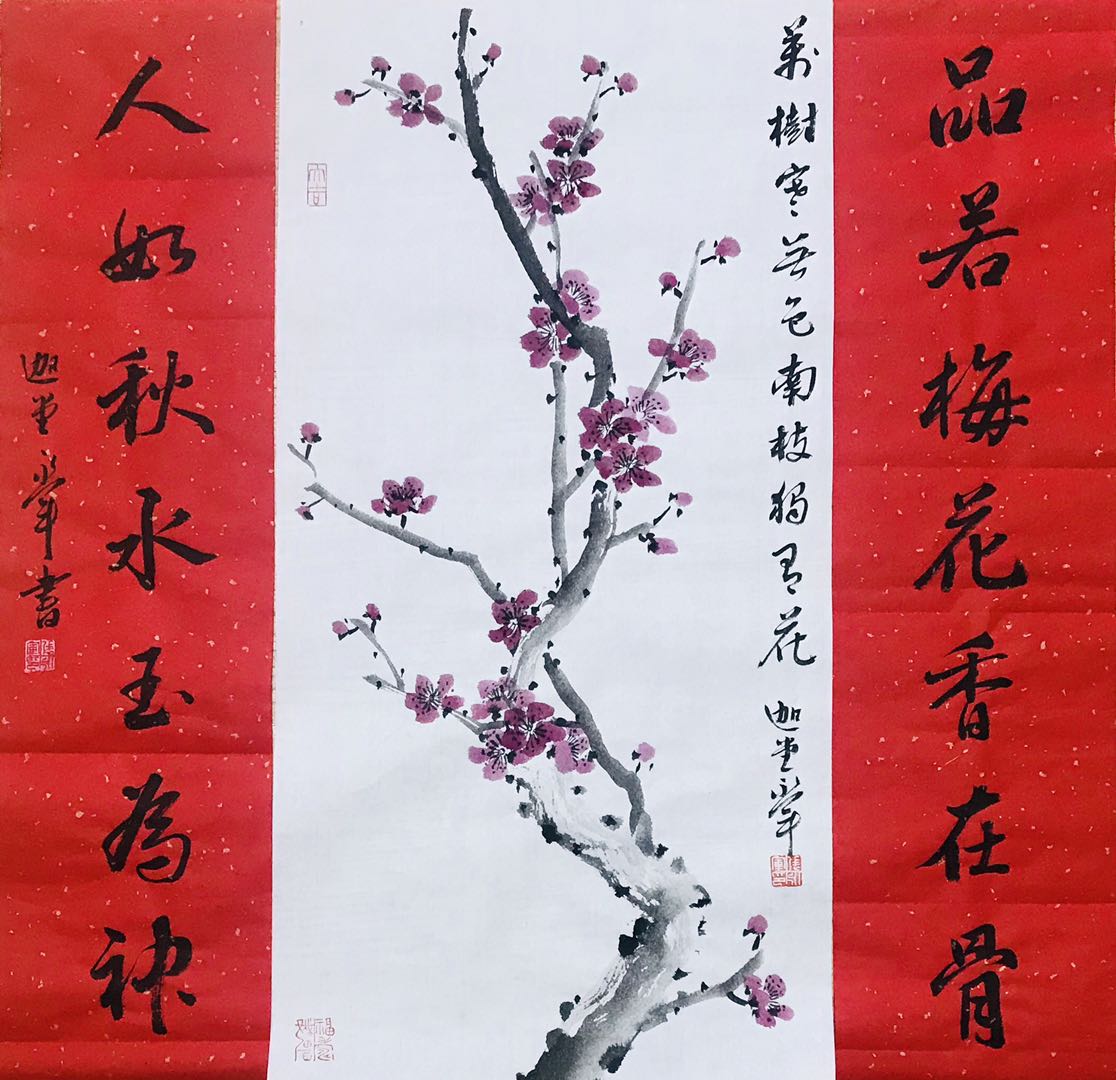 品若梅花香在骨
萬樹寒無色南枝獨有花
迦堂
人如秋水玉為神
迦堂
書